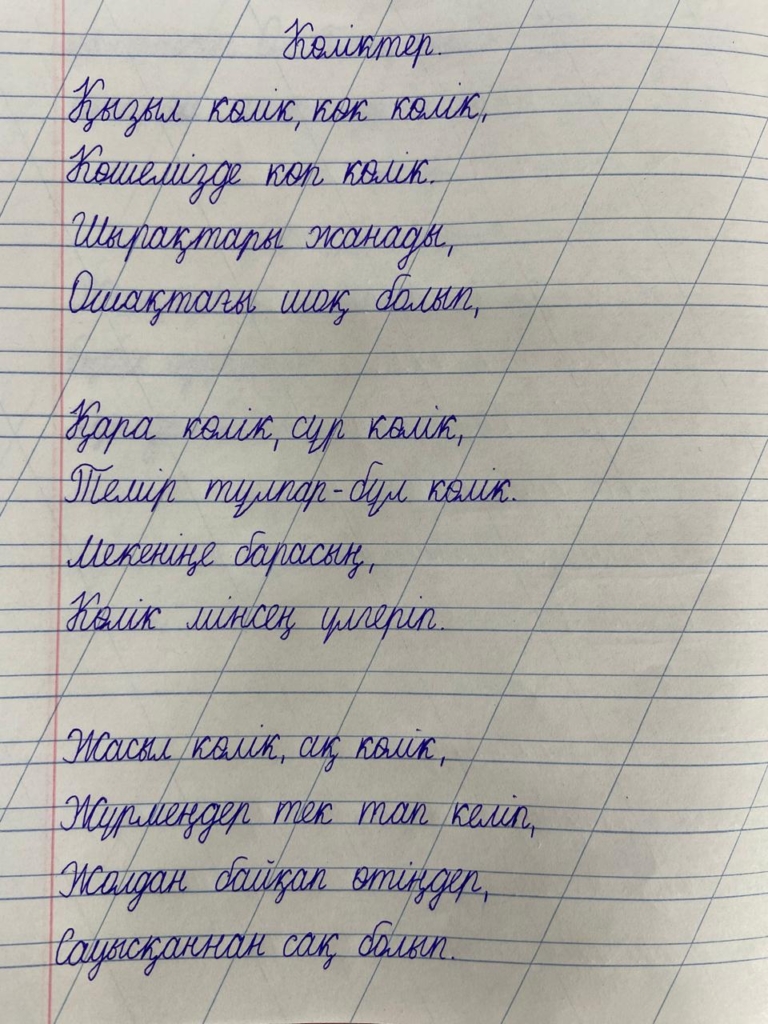 Көліктер.
Қызыл көлік, көк көлік,
Көшемізде көп көлік.
Шырақтары жанады,
Ошақтағы шоқ болып,
Қара көлік, сұр көлік,
Темір тұлпар-бұл көлік.
Мекеніңе барасың,
Көлік мінсең үлгеріп.
Жасыл көлік, ақ көлік,
Жүрмеңдер тек тап келіп,
Жолдан байқап өтіңдер,
Сауысқаннан сақ болып.